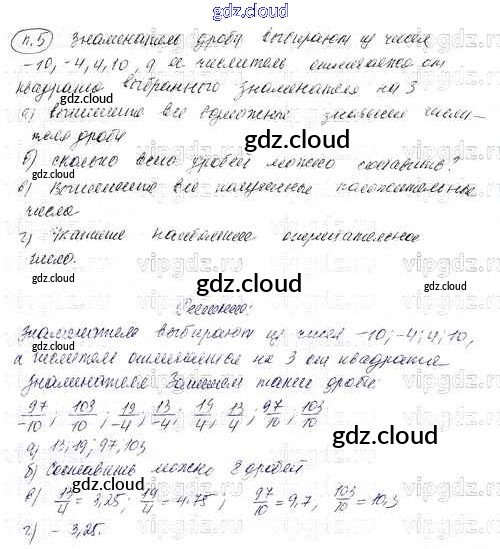 gdz.cloud
п.5 Знаменатель дроби выбирают из чисел
-10, -4, 4, 10, а ее числитель отличается от
квадрата выбранного знаменателя на 3.
а) выпишите все возможные значения числи-
теля дроби
б) сколько всего дробей можно составить?
в) Выпишите все полученные положительные
числа
г) Укажите наибольшее отрицательное
число.
gdz.cloud
gdz.cloud
gdz.cloud
gdz.cloud
Решение:
Знаменатель выбирают из чисел -10; -4; 4; 10,
а числитель отличается на 3 от квадрата
знаменателя. Запишем такие дроби:
97/-10; 103/-10; 19/-4; 13/-4; 19/4; 13/4; 97/10; 103/10
а) 13; 19; 97, 103
б) Составить можно 8 дробей
в) 13/4 = 3,25; 19/4 = 4.75; 97/10 = 9,7, 103/10 = 10,3
г) - 3,25.
gdz.cloud
gdz.cloud
gdz.cloud